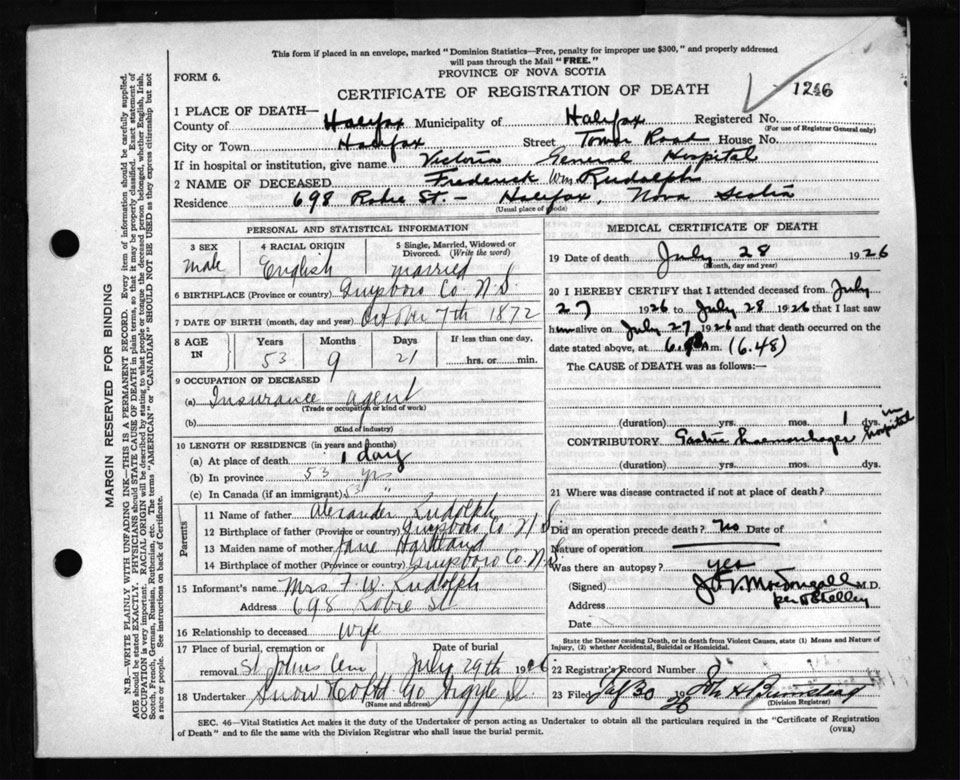 This form if placed in an envelope, marked "Dominion Statistics—Free, penalty for improper use $300," and properly addressed
will pass through the Mail "FREE."
FORM 6.
PROVINCE OF NOVA SCOTIA
CERTIFICATE OF REGISTRATION OF DEATH
1246
1 PLACE OF DEATH—
County of Halifax Municipality of Halifax Registered No.
(For use of Registrar General only)
City or Town Halifax Street Tower Road House No.
If in hospital or institution, give name Victoria General Hospital
2 NAME OF DECEASED Frederick Wm Rudolph
Residence 698 Robie St. — Halifax, Nova Scotia
(Usual place of abode)
PERSONAL AND STATISTICAL INFORMATION
3 SEX 4 RACIAL ORIGIN 5 Single, Married, Widowed or Divorced. (Write the word)
Male English Married
6 BIRTHPLACE (Province or country) Guysboro Co. N.S.
7 DATE OF BIRTH (month, day and year) October 7th 1872
8 AGE IN Years Months Days If less than one day,
53 9 21 hrs. or min.
9 OCCUPATION OF DECEASED
(a) Insurance agent
(Trade or occupation or kind of work)
(b)
(Kind of industry)
10 LENGTH OF RESIDENCE (in years and months)
(a) At place of death 1 day
(b) In province 53 yrs
(c) In Canada (if an immigrant) 53 "
Parents
11 Name of father Alexander Rudolph
12 Birthplace of father (Province or country) Guysboro Co N.S.
13 Maiden name of mother Jane Hartland
14 Birthplace of mother (Province or country) Guysboro Co. N.S.
15 Informant's name Mrs F. W. Rudolph
Address 698 Robie St
16 Relationship to deceased Wife
17 Place of burial, cremation or removal St Johns Cem Date of burial July 29th 1926
18 Undertaker Snow & Co Ltd 90 Argyle St.
(Name and address)
MEDICAL CERTIFICATE OF DEATH
19 Date of death July 28 1926
(Month, day and year)
20 I HEREBY CERTIFY that I attended deceased from July
27 1926 to July 28 1926 that I last saw
him alive on July 27 1926 and that death occurred on
date stated above, at 6. m. (6.48)
The CAUSE of DEATH was as follows:—
(duration) yrs. mos. 1 dys. in hospital
CONTRIBUTORY Gastric haemorrhage
(duration) yrs. mos. dys.
21 Where was disease contracted if not at place of death?
Did an operation precede death? No Date of
Nature of operation
Was there an autopsy? yes
(Signed) MacDougall M.D.
per Shelley
Address
Date
State the Disease causing Death, or in death from Violent Causes, state (1) Means and Nature of
Injury, (2) whether Accidental, Suicidal or Homicidal.
22 Registrar's Record Number
23 Filed 30 1926 Jon H Barnstead
(Division Registrar)
SEC. 46—Vital Statistics Act makes it the duty of the Undertaker or person acting as Undertaker to obtain all the particulars required in the "Certificate of Registration
of Death" and to file the same with the Division Registrar who shall issue the burial permit.
(OVER)
MARGIN RESERVED FOR BINDING
N.B.—WRITE PLAINLY WITH UNFADING INK—THIS IS A PERMANENT RECORD. Every item of information should be carefully supplied.
AGE should be stated EXACTLY. PHYSICIANS should STATE CAUSE OF DEATH in plain terms, so that it may be properly classified. Exact statement of
OCCUPATION is very important. RACIAL ORIGIN will be described by stating to what people or tongue the deceased person belonged, whether English, Irish,
Scotch, French, German, Russian, Ruthenian, etc. The terms "AMERICAN" or "CANADIAN" SHOULD NOT BE USED as they express citizenship but not
a race or people. See instructions on back of Certificate.